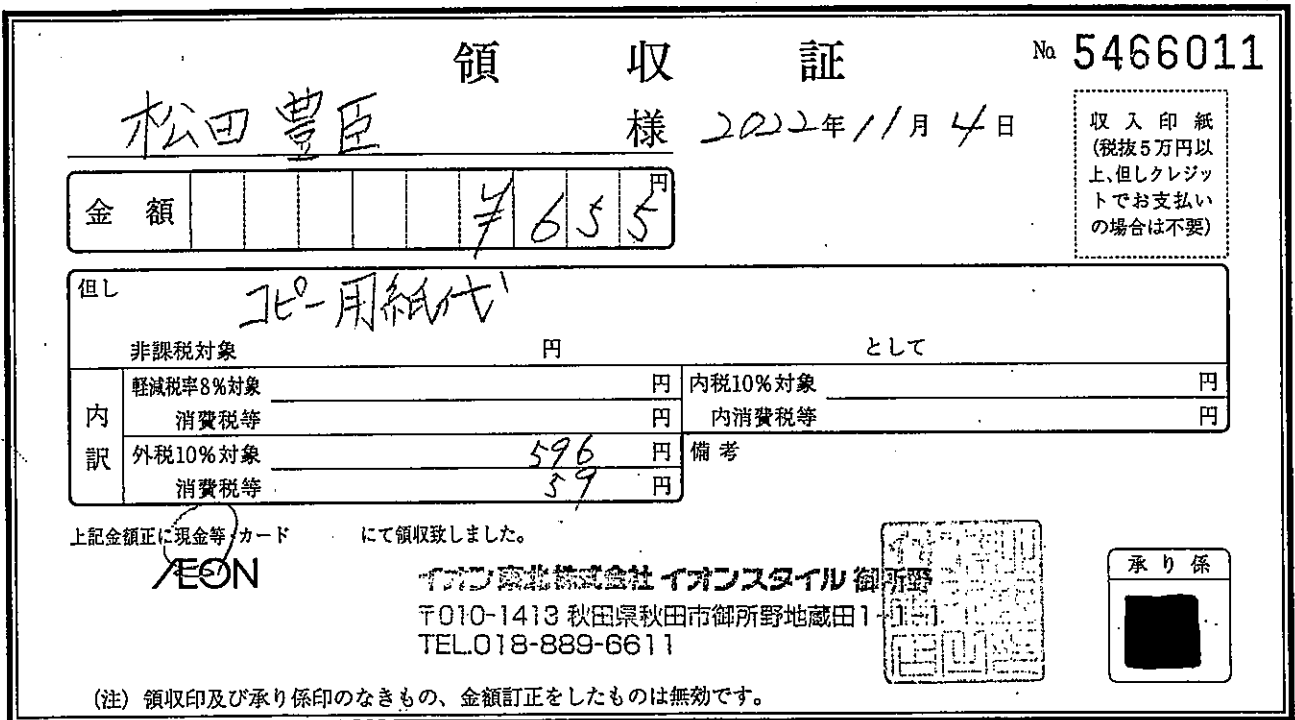 領収証 № 5466011
松田豊臣 様 2022年11月4日
収入印紙
(税抜5万円以
上、但しクレジッ
トでお支払い
の場合は不要)
金額 ¥655円
但し コピー用紙代
非課税対象 円 として
内訳
軽減税率8%対象 円 内税10%対象 円
消費税等 円 内消費税等 円
外税10%対象 596円 備考
消費税等 59円
上記金額正に現金等・カード にて領収致しました。
ÆON
イオン東北株式会社 イオンスタイル御所野
〒010-1413 秋田県秋田市御所野地蔵田1-1-1
TEL.018-889-6611
承り係
(注) 領収印及び承り係印のなきもの、金額訂正をしたものは無効です。